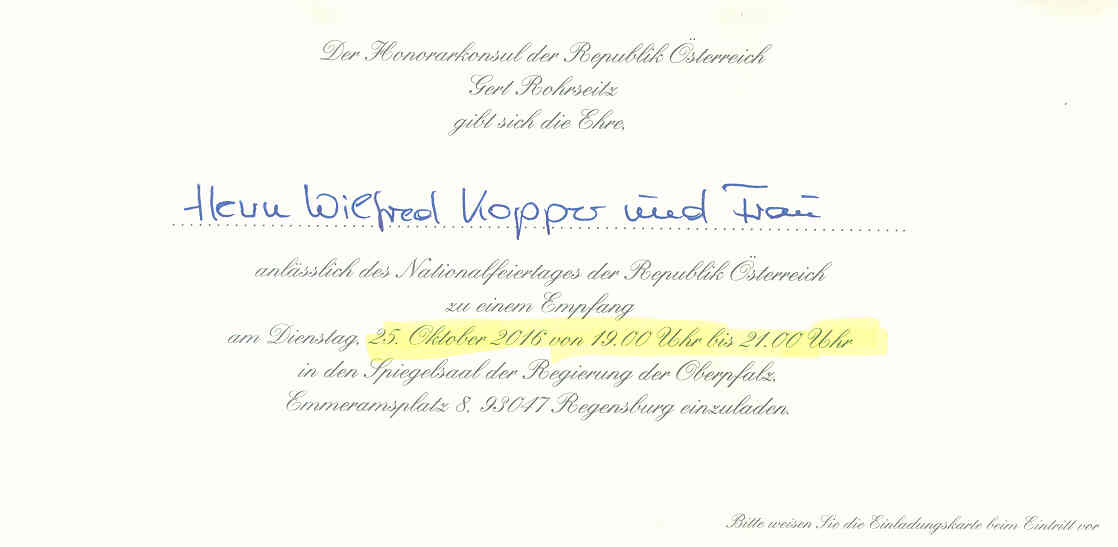 Der Honorarkonsul der Republik Österreich
Gert Rohrseitz
gibt sich die Ehre,
Herrn Wilfred Kopper und Frau
anlässlich des Nationalfeiertages der Republik Österreich
zu einem Empfang
am Dienstag, 25. Oktober 2016 von 19.00 Uhr bis 21.00 Uhr
in den Spiegelsaal der Regierung der Oberpfalz,
Emmeramsplatz 8, 93047 Regensburg einzuladen.
Bitte weisen Sie die Einladungskarte beim Eintritt vor